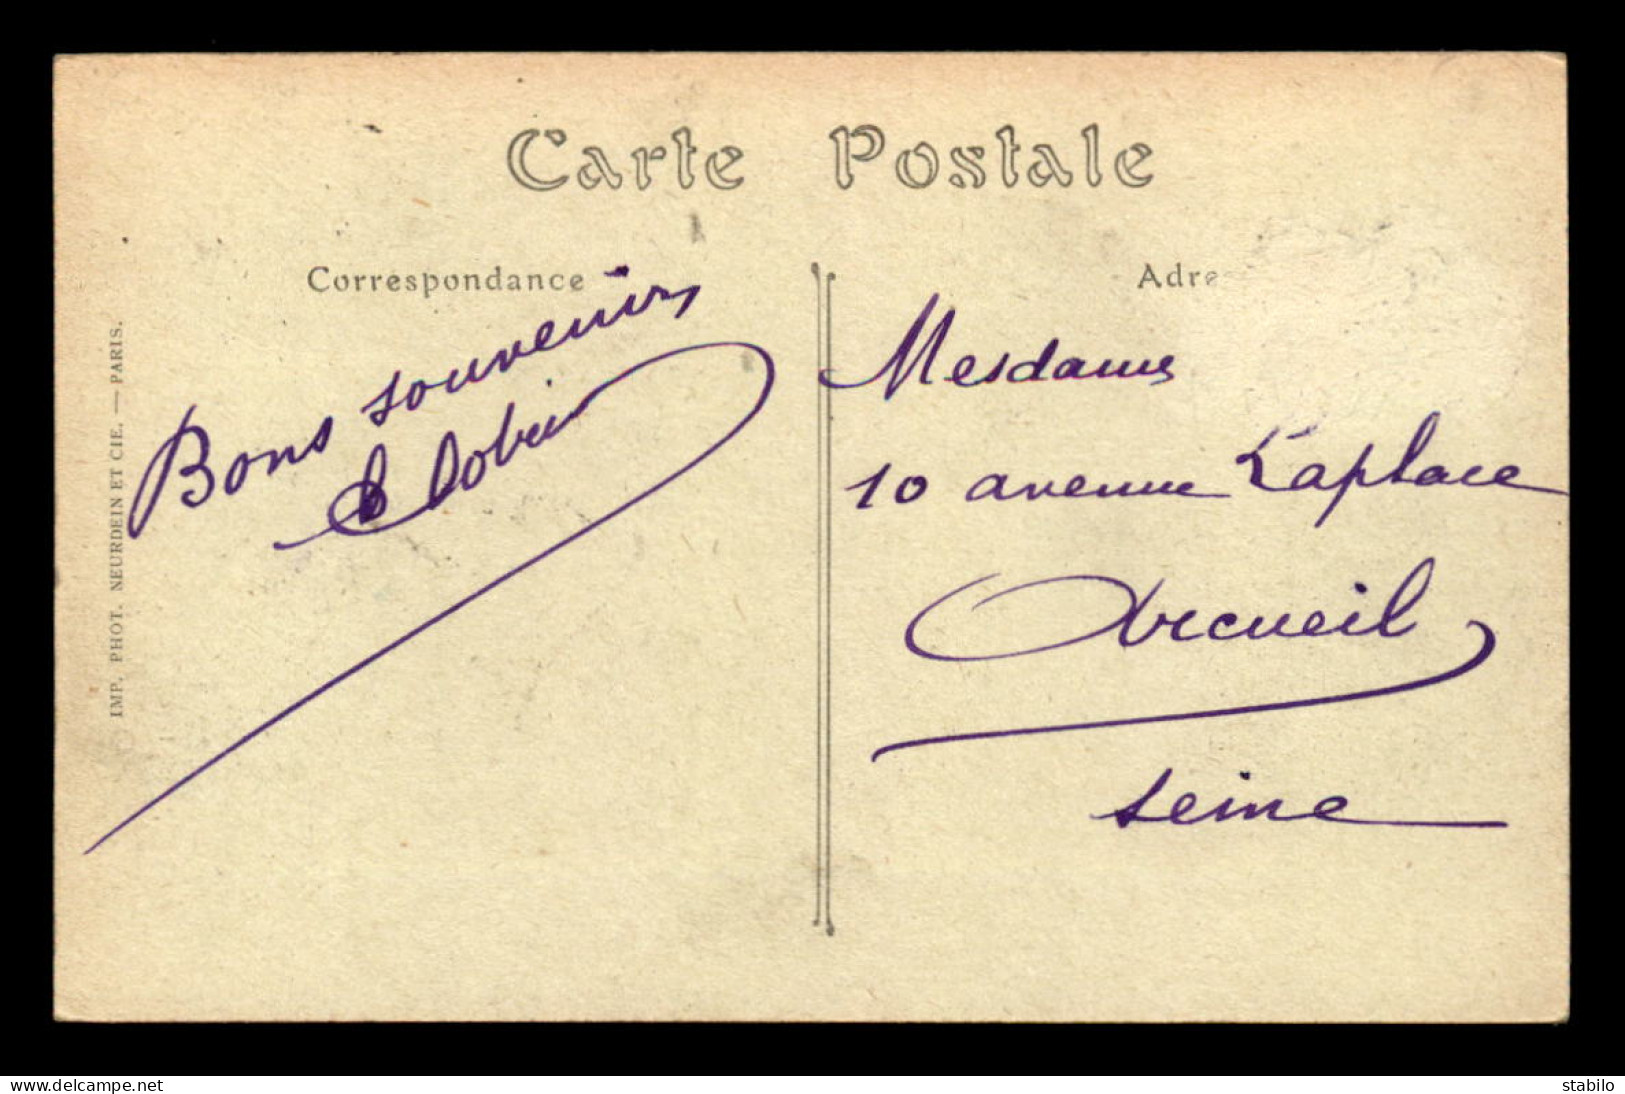 Carte Postale
Correspondance
Bons souvenirs
IMP. PHOT. NEURDEIN ET CIE. — PARIS.
Adre
Mesdames
10 avenue Laplace
Arcueil
Seine
www.delcampe.net
stabilo